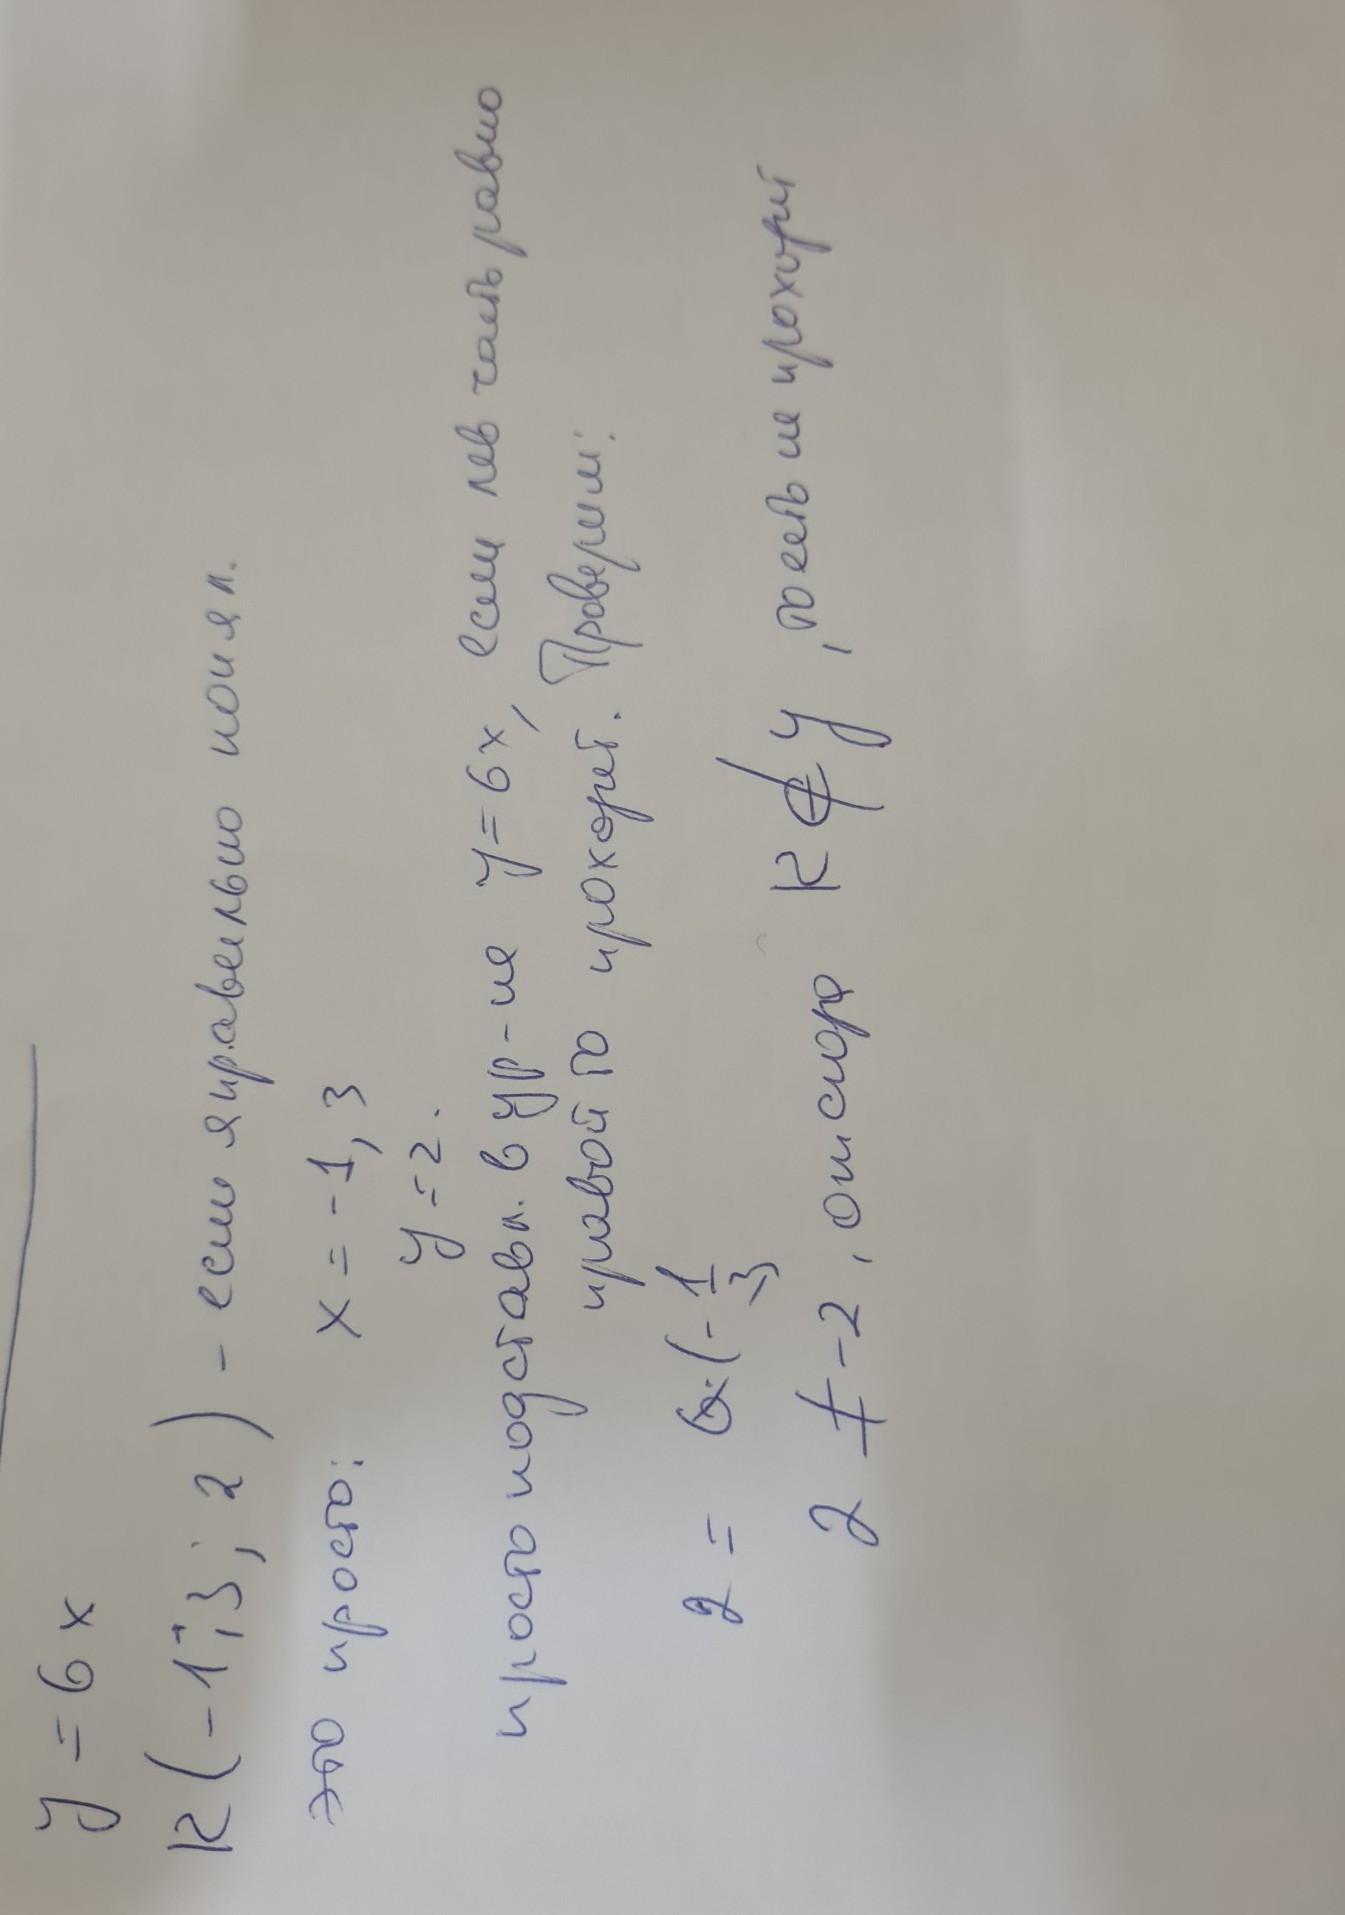 y = 6x
K(-1;3; 2) - если я правельно понял.
это просто: x = -1,3
y = 2.
просто подставл. в ур-ие y = 6x, если лев часть равно
правой то проходет. Проверим:
2 = 6·(-1/3)
2 ≠ -2, отсюда K ∉ y, тоесть не проходит